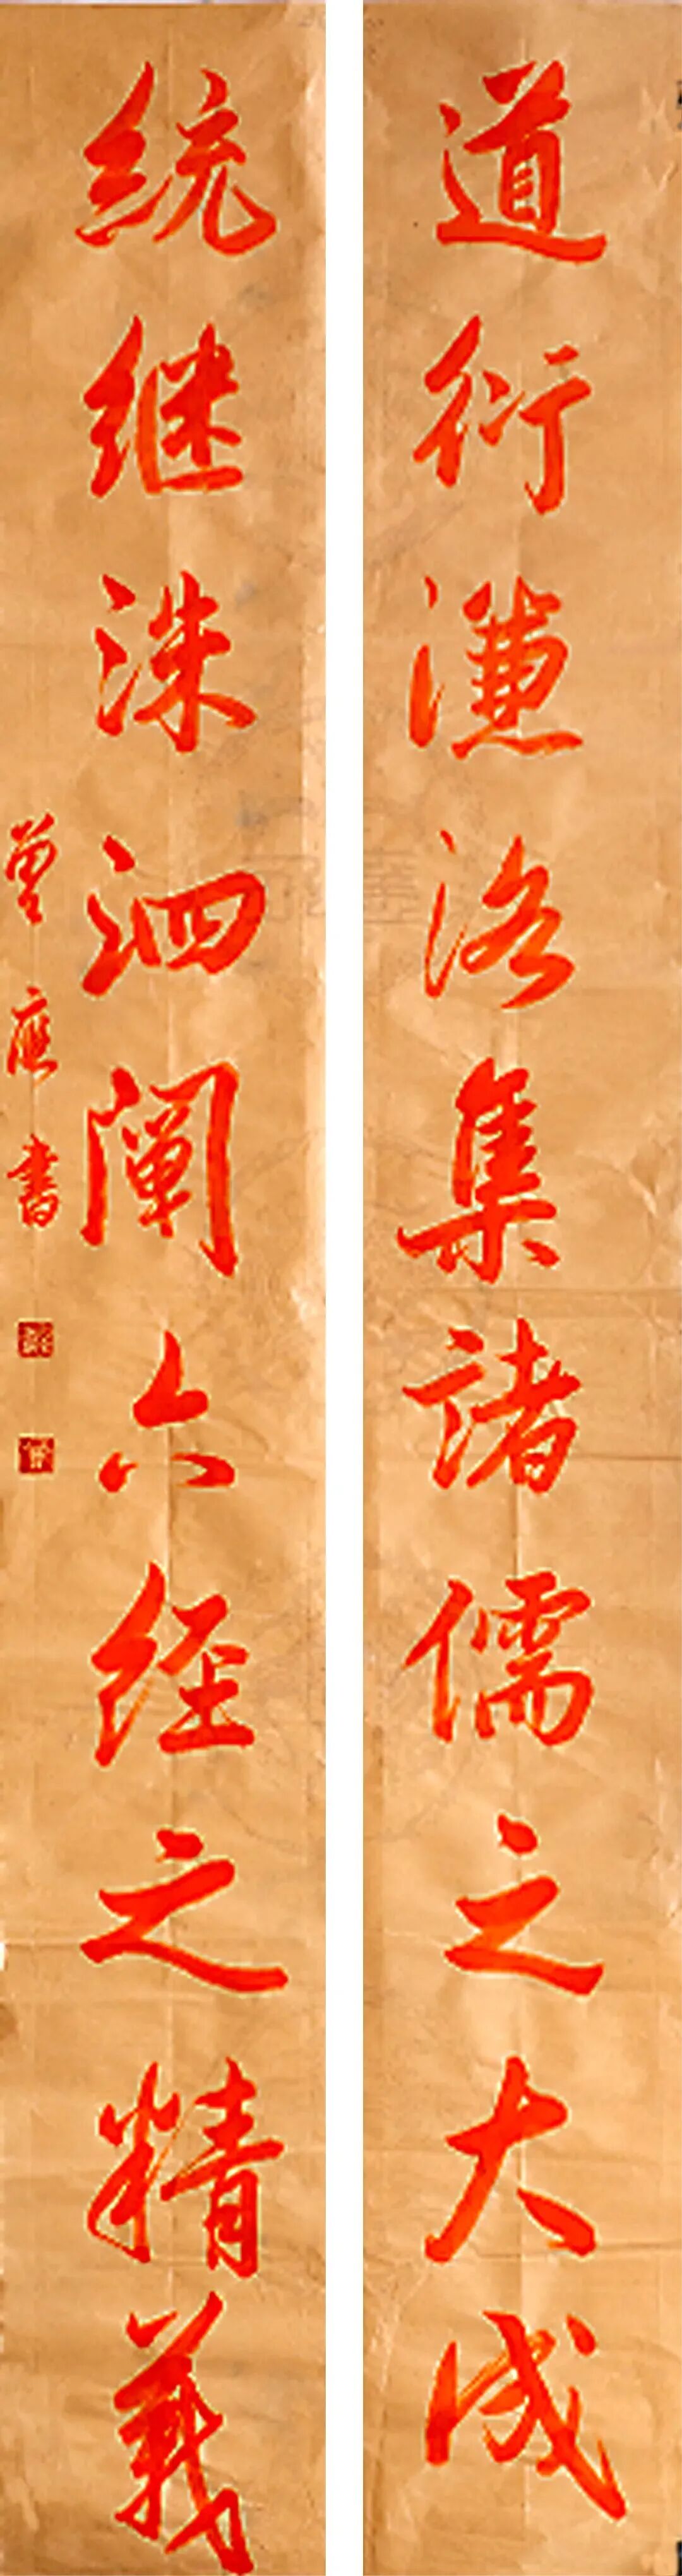 道衍濂洛集諸儒之大成
统继洙泗阐六经之精義
曾應書